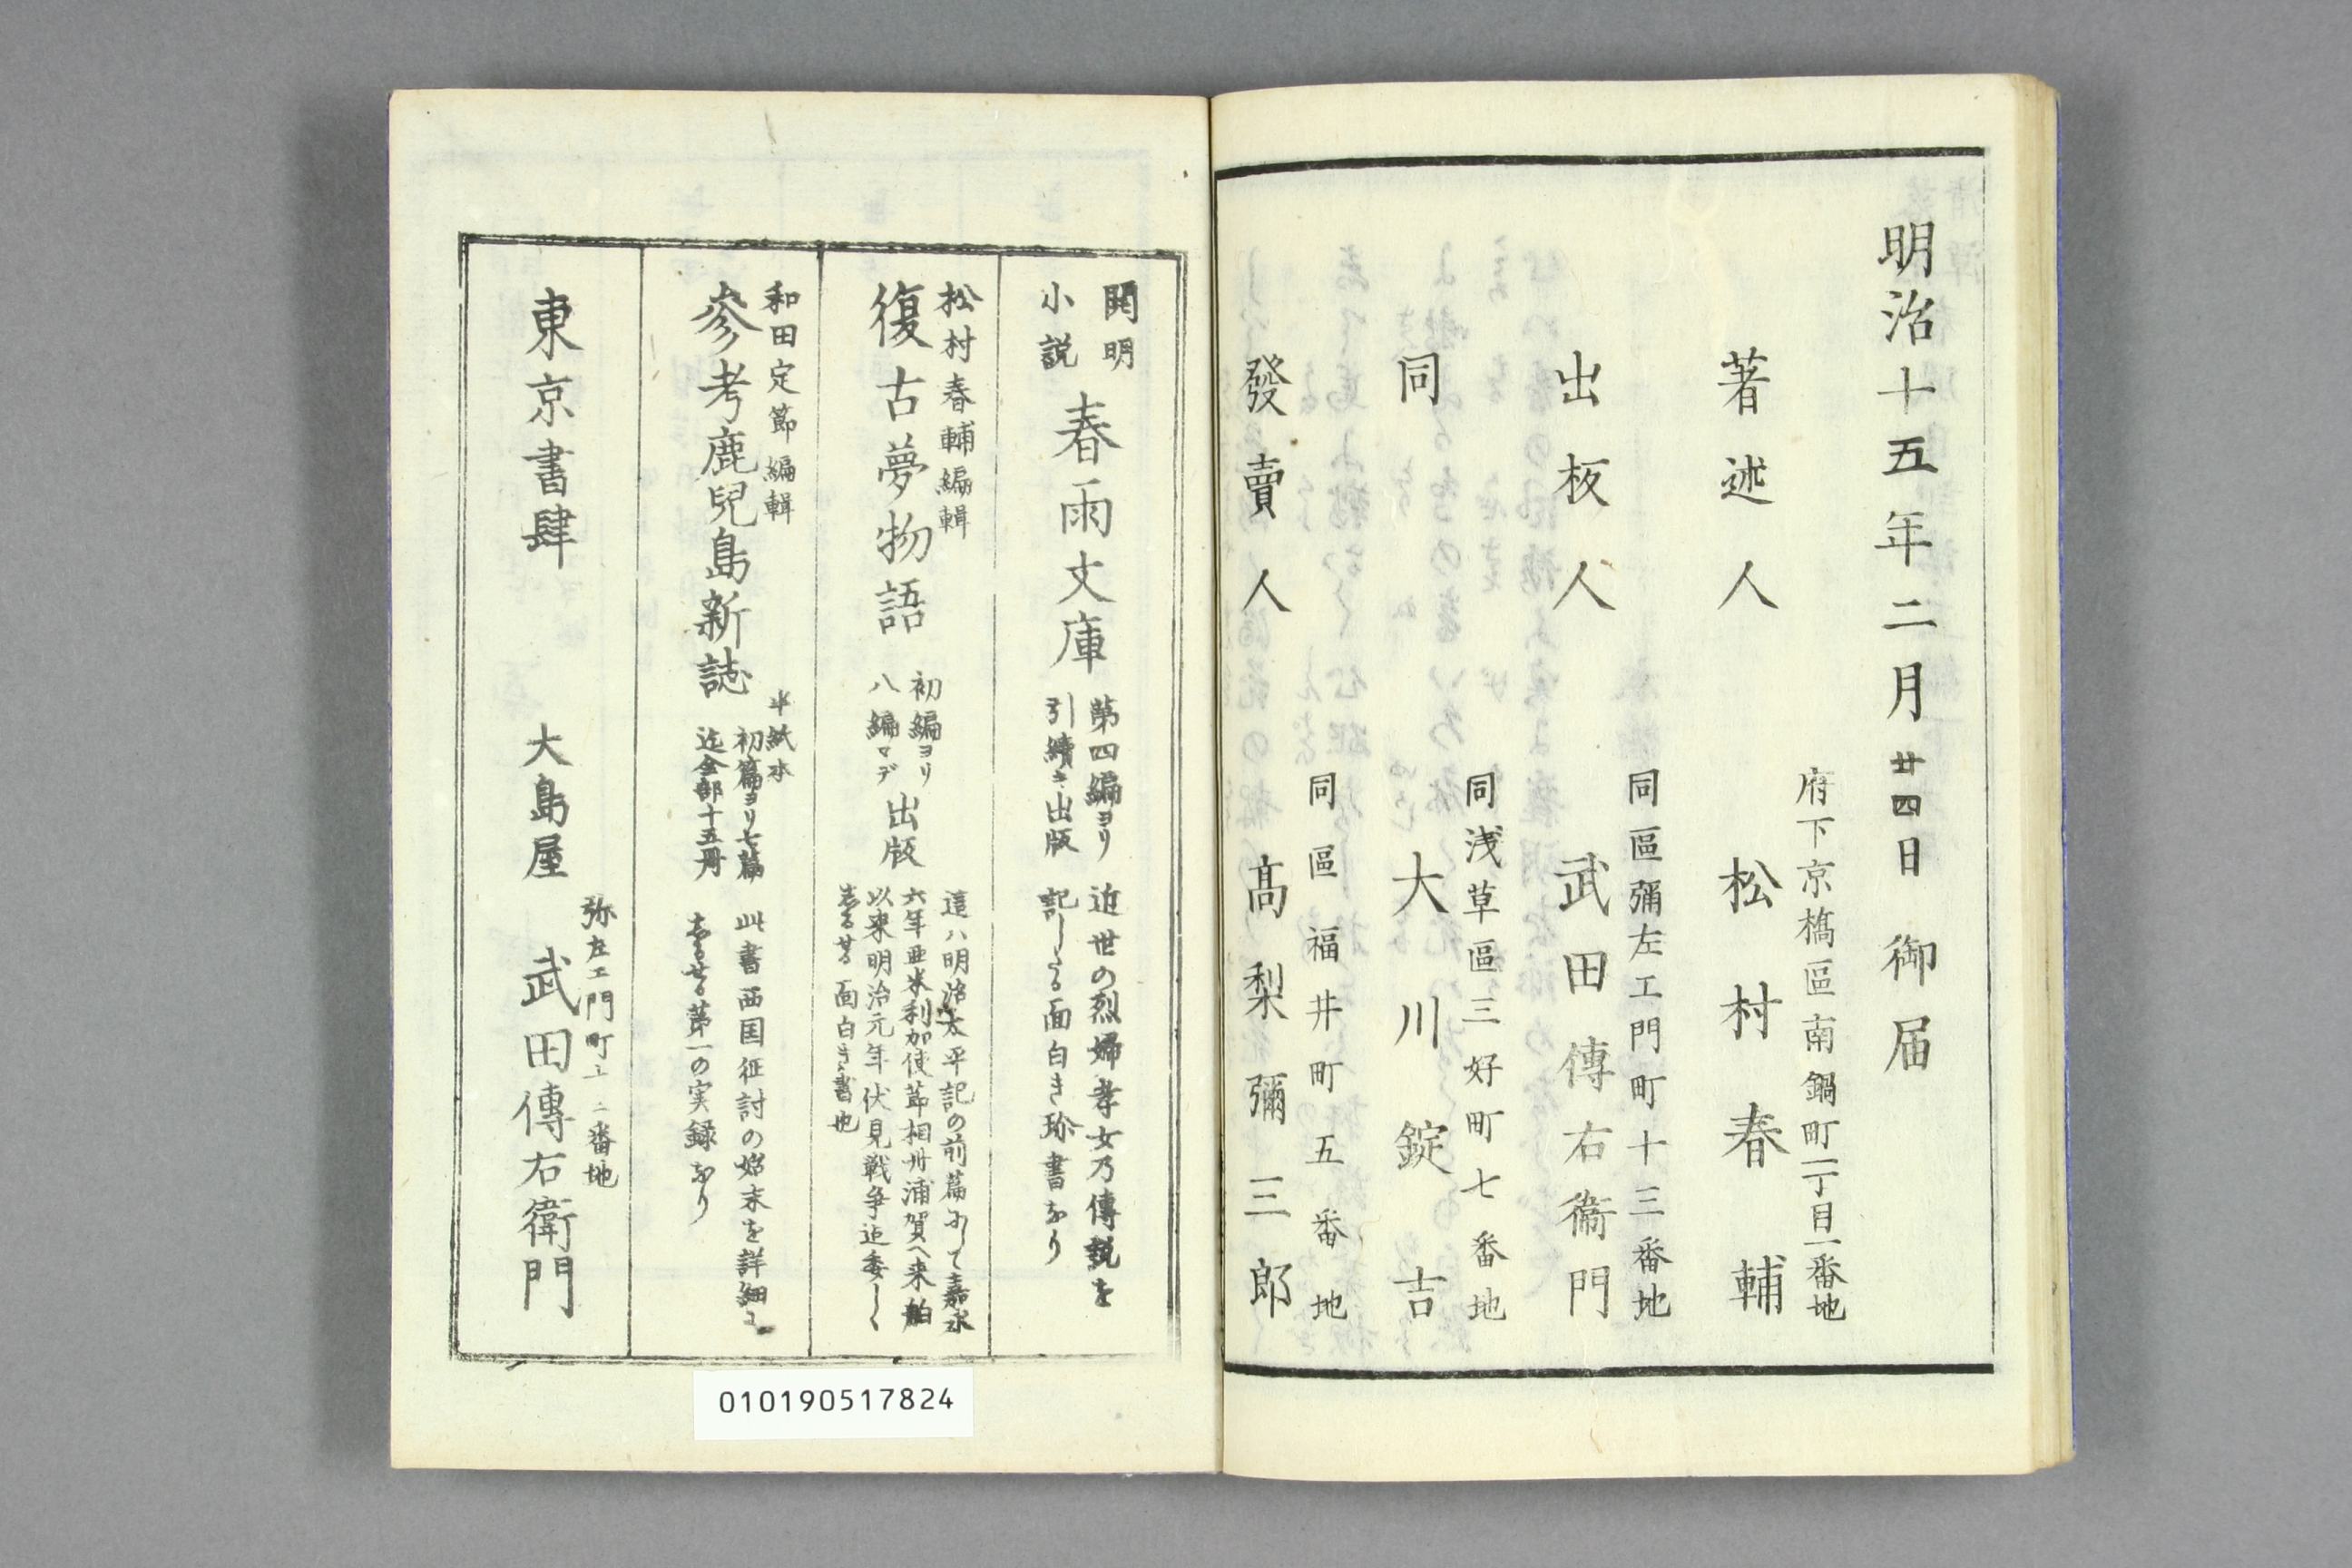 明治十五年二月廿四日 御届
府下京橋區南鍋町一丁目一番地
著述人 松村春輔
同區彌左エ門町十三番地
出板人 武田傳右衞門
同浅草區三好町七番地
同 大川錠吉
同區福井町五番地
發賣人 髙梨彌三郎
開明
小説
春雨文庫
第四編ヨリ
引續き出版
近世の烈婦孝女乃傳説を
記したる面白き珍書なり
松村春輔編輯
復古夢物語
初編ヨリ
八編マデ
出版
這ハ明治太平記の前篇にして嘉永
六年亜米利加使節相州浦賀へ来舶
以来明治元年伏見戦争迄委しく
志るせる面白き書也
和田定節編輯
参考鹿兒島新誌
半紙本
初篇ヨリ七篇
迄全部十五冊
此書西国征討の始末を詳細に
志るせる第一の実録なり
東京書肆
大島屋
弥左エ門町十三番地
武田傳右衛門
010190517824